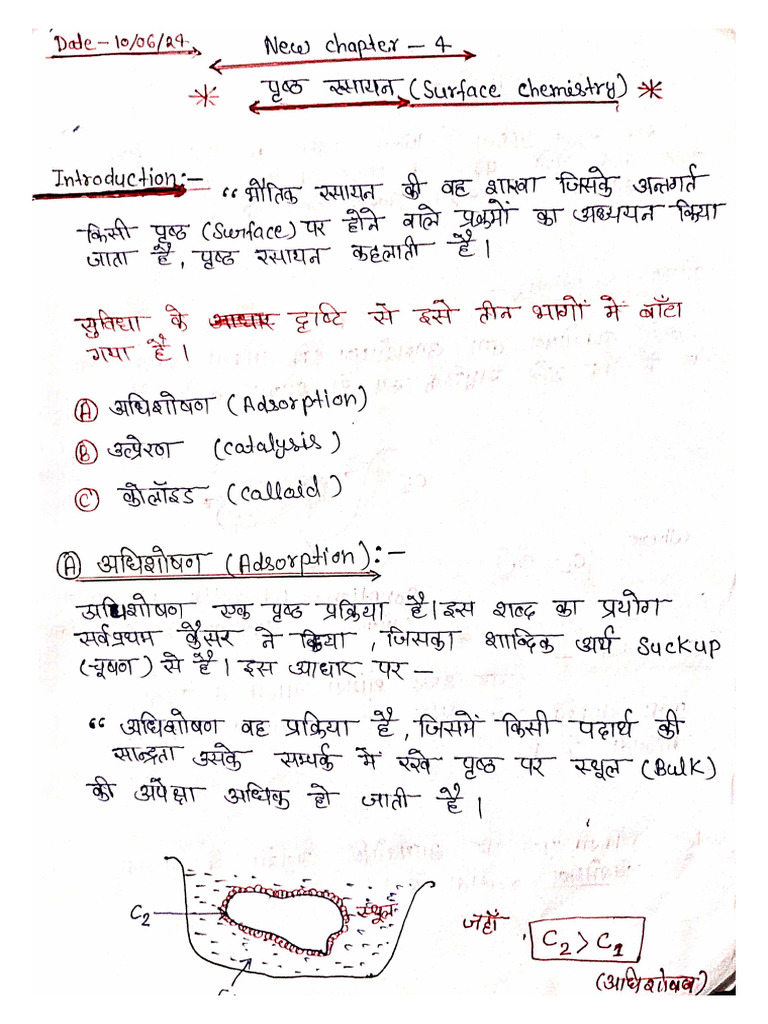 Date - 10/06/24
New chapter - 4
* पृष्ठ रसायन (Surface chemistry) *
Introduction:-
“ भौतिक रसायन की वह शाखा जिसके अन्तर्गत
किसी पृष्ठ (Surface) पर होने वाले प्रक्रमों का अध्ययन किया
जाता है, पृष्ठ रसायन कहलाती है।
सुविधा के आधार दृष्टि से इसे तीन भागों में बाँटा
गया है।
(A) अधिशोषण (Adsorption)
(B) उत्प्रेरण (catalysis)
(C) कोलॉइड (Calloid)
(A) अधिशोषण (Adsorption):-
अधिशोषण एक पृष्ठ प्रक्रिया है। इस शब्द का प्रयोग
सर्वप्रथम कैसर ने किया, जिसका शाब्दिक अर्थ Suckup
(चूषण) से है। इस आधार पर -
“ अधिशोषण वह प्रक्रिया है, जिसमें किसी पदार्थ की
सान्द्रता उसके सम्पर्क में रखे पृष्ठ पर स्थूल (Bulk)
की अपेक्षा अधिक हो जाती है।
C2
स्थूल
जहाँ
C2 > C1